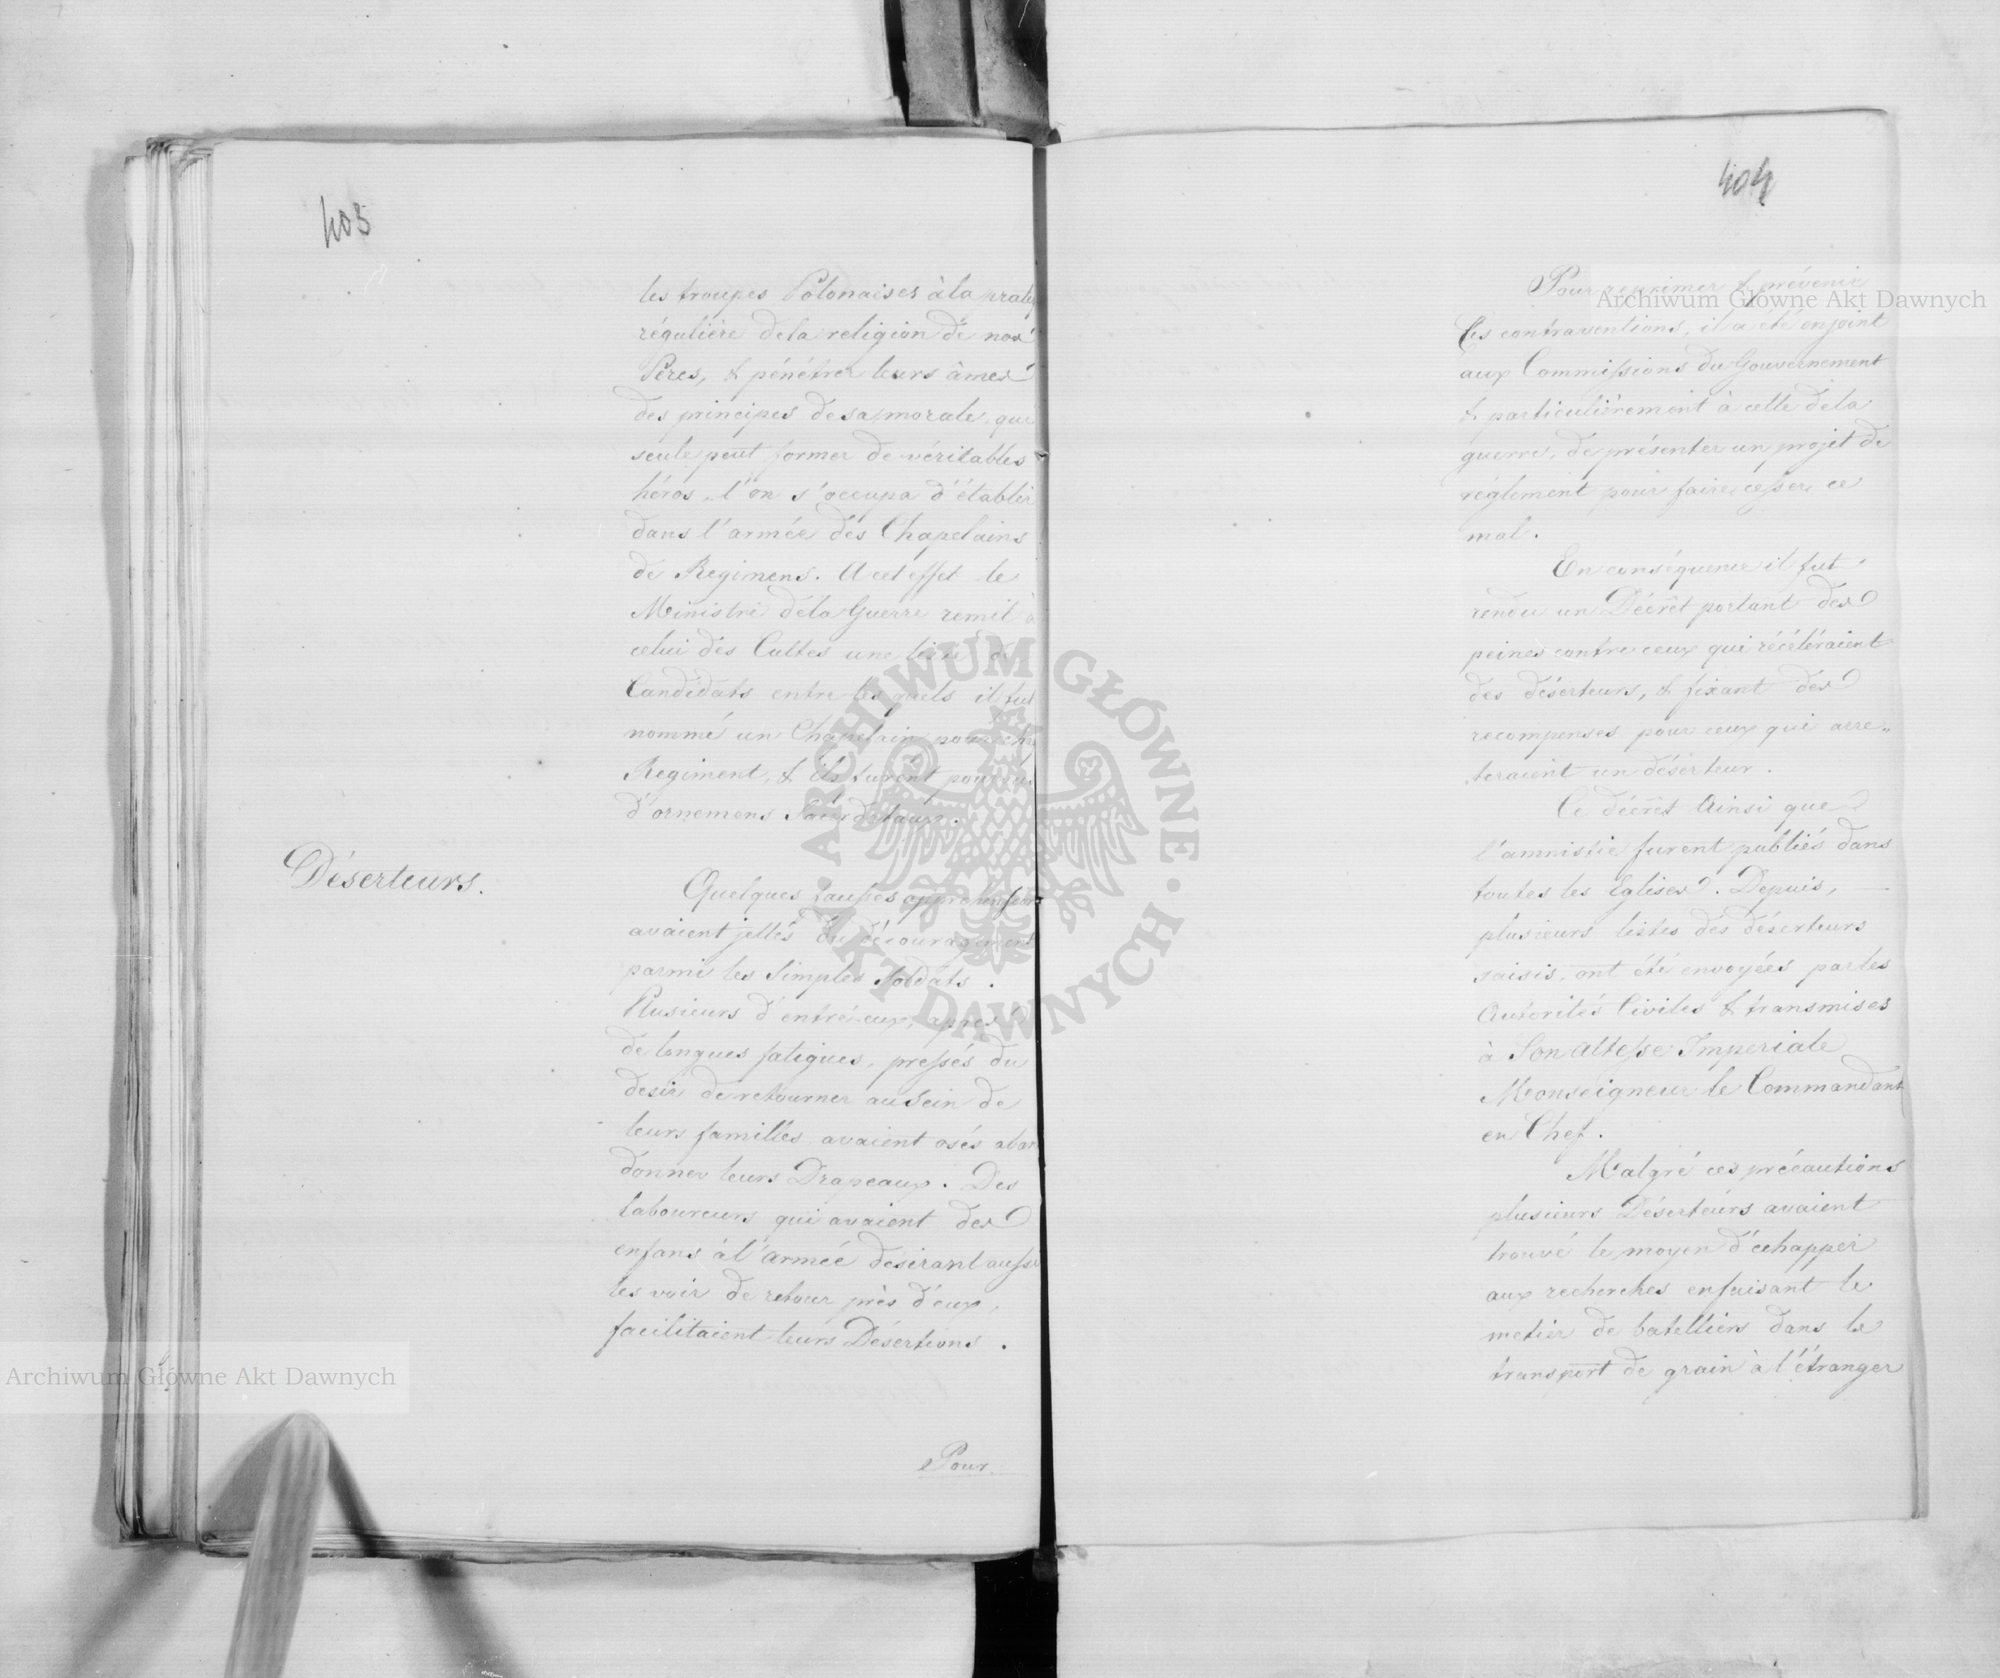 403
les troupes Polonaises à la
régulière de la religion de nos
Pères, & pénétrer leurs âmes
des principes de sa morale, que
seule peut former de véritables
héros, l'on s'occupa d'établir
dans l'armée des Chapelains
de Regimens. A cet effet le
Ministre de la Guerre remit à
celui des Cultes une liste de
Candidats entre les quels il fut
nommé un Chapelain pour
Regiment, & ils furent
d'ornemens Sacerdotaux.
Déserteurs.
Quelques fausses
avaient jettés du découragement
parmi les simples soldats.
Plusieurs d'entre-eux, après
de longues fatigues, pressés du
desir de retourner au sein de
leurs familles, avaient osés aban
donner leurs Drapeaux. Des
laboureurs qui avaient des
enfans à l'armée désirant aussi
les voir de retour près d'eux,
facilitaient leurs Désertions.
Pour
404
Pour reprimer & prévenir
les contraventions, il a été enjoint
aux Commissions du Gouvernement
& particulièrement à celle de la
guerre, de présenter un projet de
réglement pour faire cesser ce
mal.
En conséquence il fut
rendu un Décret portant des
peines contre ceux qui récéleraient
des déserteurs, & fixant des
recompenses pour ceux qui arre„
teraient un déserteur.
Ce décret Ainsi que
l'amnistie furent publiés dans
toutes les Eglises. Depuis,
plusieurs listes des déserteurs
saisis, ont été envoyées par les
Autorités Civiles & transmises
à Son Altesse Imperiale
Monseigneur le Commandant
en Chef.
Malgré ces précautions
plusieurs Déserteurs avaient
trouvé le moyen d'echapper
aux recherches en faisant le
metier de batelliers dans le
transport de grain à l'étranger
Archiwum Główne Akt Dawnych
Archiwum Główne Akt Dawnych
ARCHIWUM GŁÓWNE • AKT DAWNYCH •